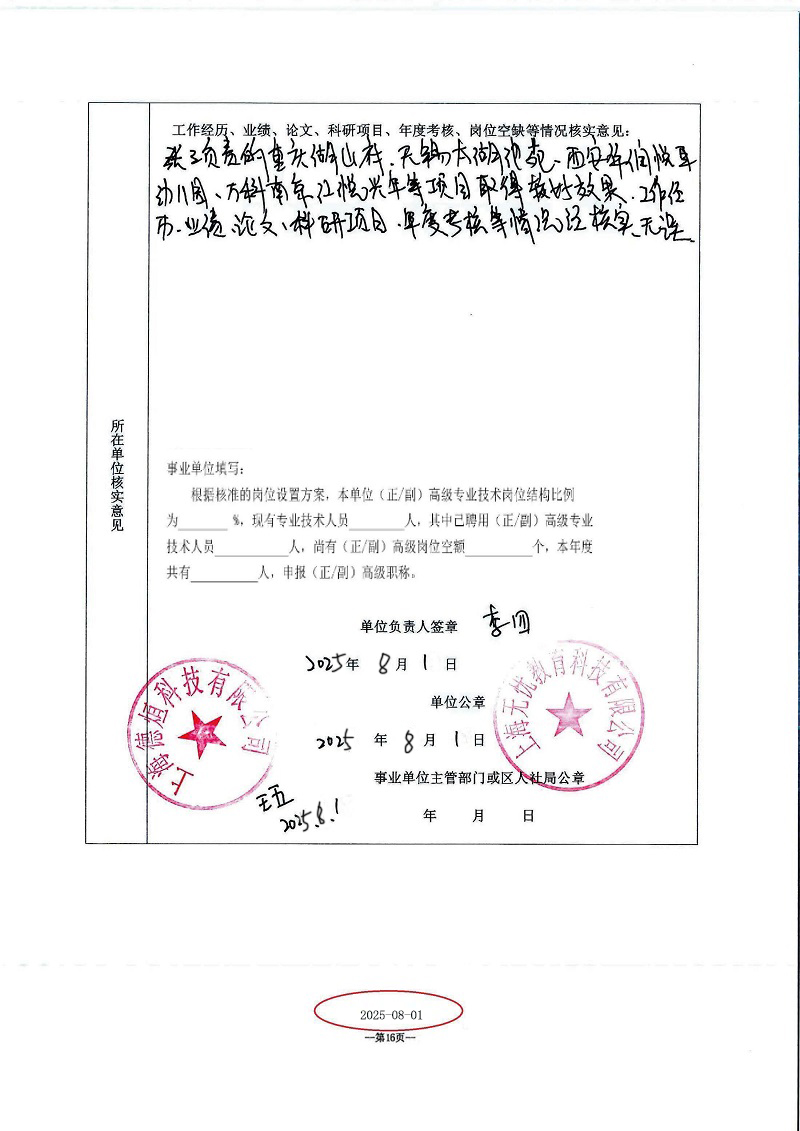 工作经历、业绩、论文、科研项目、年度考核、岗位空缺等情况核实意见：
张三负责的重庆湖山村、无锡太湖、西安华润悦府
幼儿园、万科南京江悦兴年等项目取得较好效果、工作经
历、业绩、论文、科研项目、年度考核等情况经核实、无误。
所在单位核实意见
事业单位填写：
根据核准的岗位设置方案，本单位（正/副）高级专业技术岗位结构比例
为______%，现有专业技术人员______人，其中已聘用（正/副）高级专业
技术人员________人，尚有（正/副）高级岗位空额________个，本年度
共有________人，申报（正/副）高级职称。
单位负责人签章 李四
2025年 8月 1日
单位公章
2025 年 8月 1日
事业单位主管部门或区人社局公章
年 月 日
上海德恒科技有限公司
上海无忧教育科技有限公司
王五
2025.8.1
2025-08-01
—第16页—